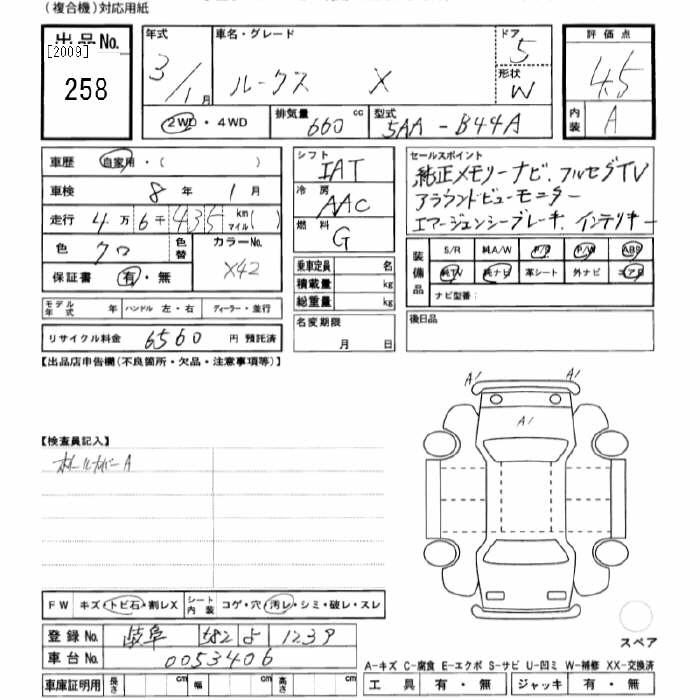 (複合機)対応用紙
出品No.
[2009]
258
年式 3/1月
車名・グレード ルークス X
ドア 5
形状 W
評価点 4.5
内装 A
2WD・4WD
排気量 660 cc
型式 5AA-B44A
車歴 自家用・( )
車検 8年 1月
走行 4万6千435 km マイル( )
色 クロ
色替
カラーNo. X42
保証書 有・無
モデル年式 年 ハンドル 左・右 ディーラー・並行
リサイクル料金 6560 円 預託済
シフト IAT
冷房 AAC
燃料 G
乗車定員 名
積載量 kg
総重量 kg
名変期限 月 日
セールスポイント
純正メモリーナビ.フルセグTV
アラウンドビューモニター
エマージェンシーブレーキ.インテリキー
装備品
S/R 純A/W P/S P/W ABS
純TV 純ナビ 革シート 外ナビ エアB
ナビ型番:
後日品
【出品店申告欄(不良箇所・欠品・注意事項等)】
A1 A1
A1
【検査員記入】
FW キズ・トビ石・割レX シート内装 コゲ・穴・汚レ・シミ・破レ・スレ
登録No. 岐阜 582 よ 1239
車台No. 0053406
スペア
A-キズ C-腐食 E-エクボ S-サビ U-凹ミ W-補修 XX-交換済
車庫証明用 長さ cm 幅 cm 高さ cm
工具 有・無 ジャッキ 有・無